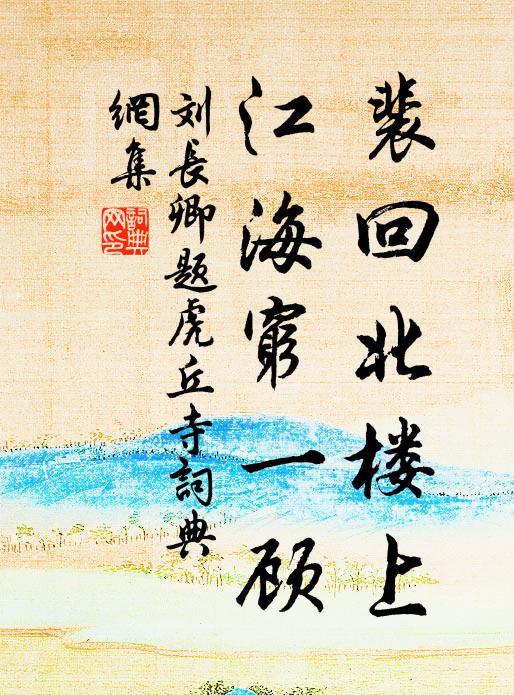 裴回北楼上
江海窮一顾
刘長卿题虎丘寺詞典
網集
詞典
网印